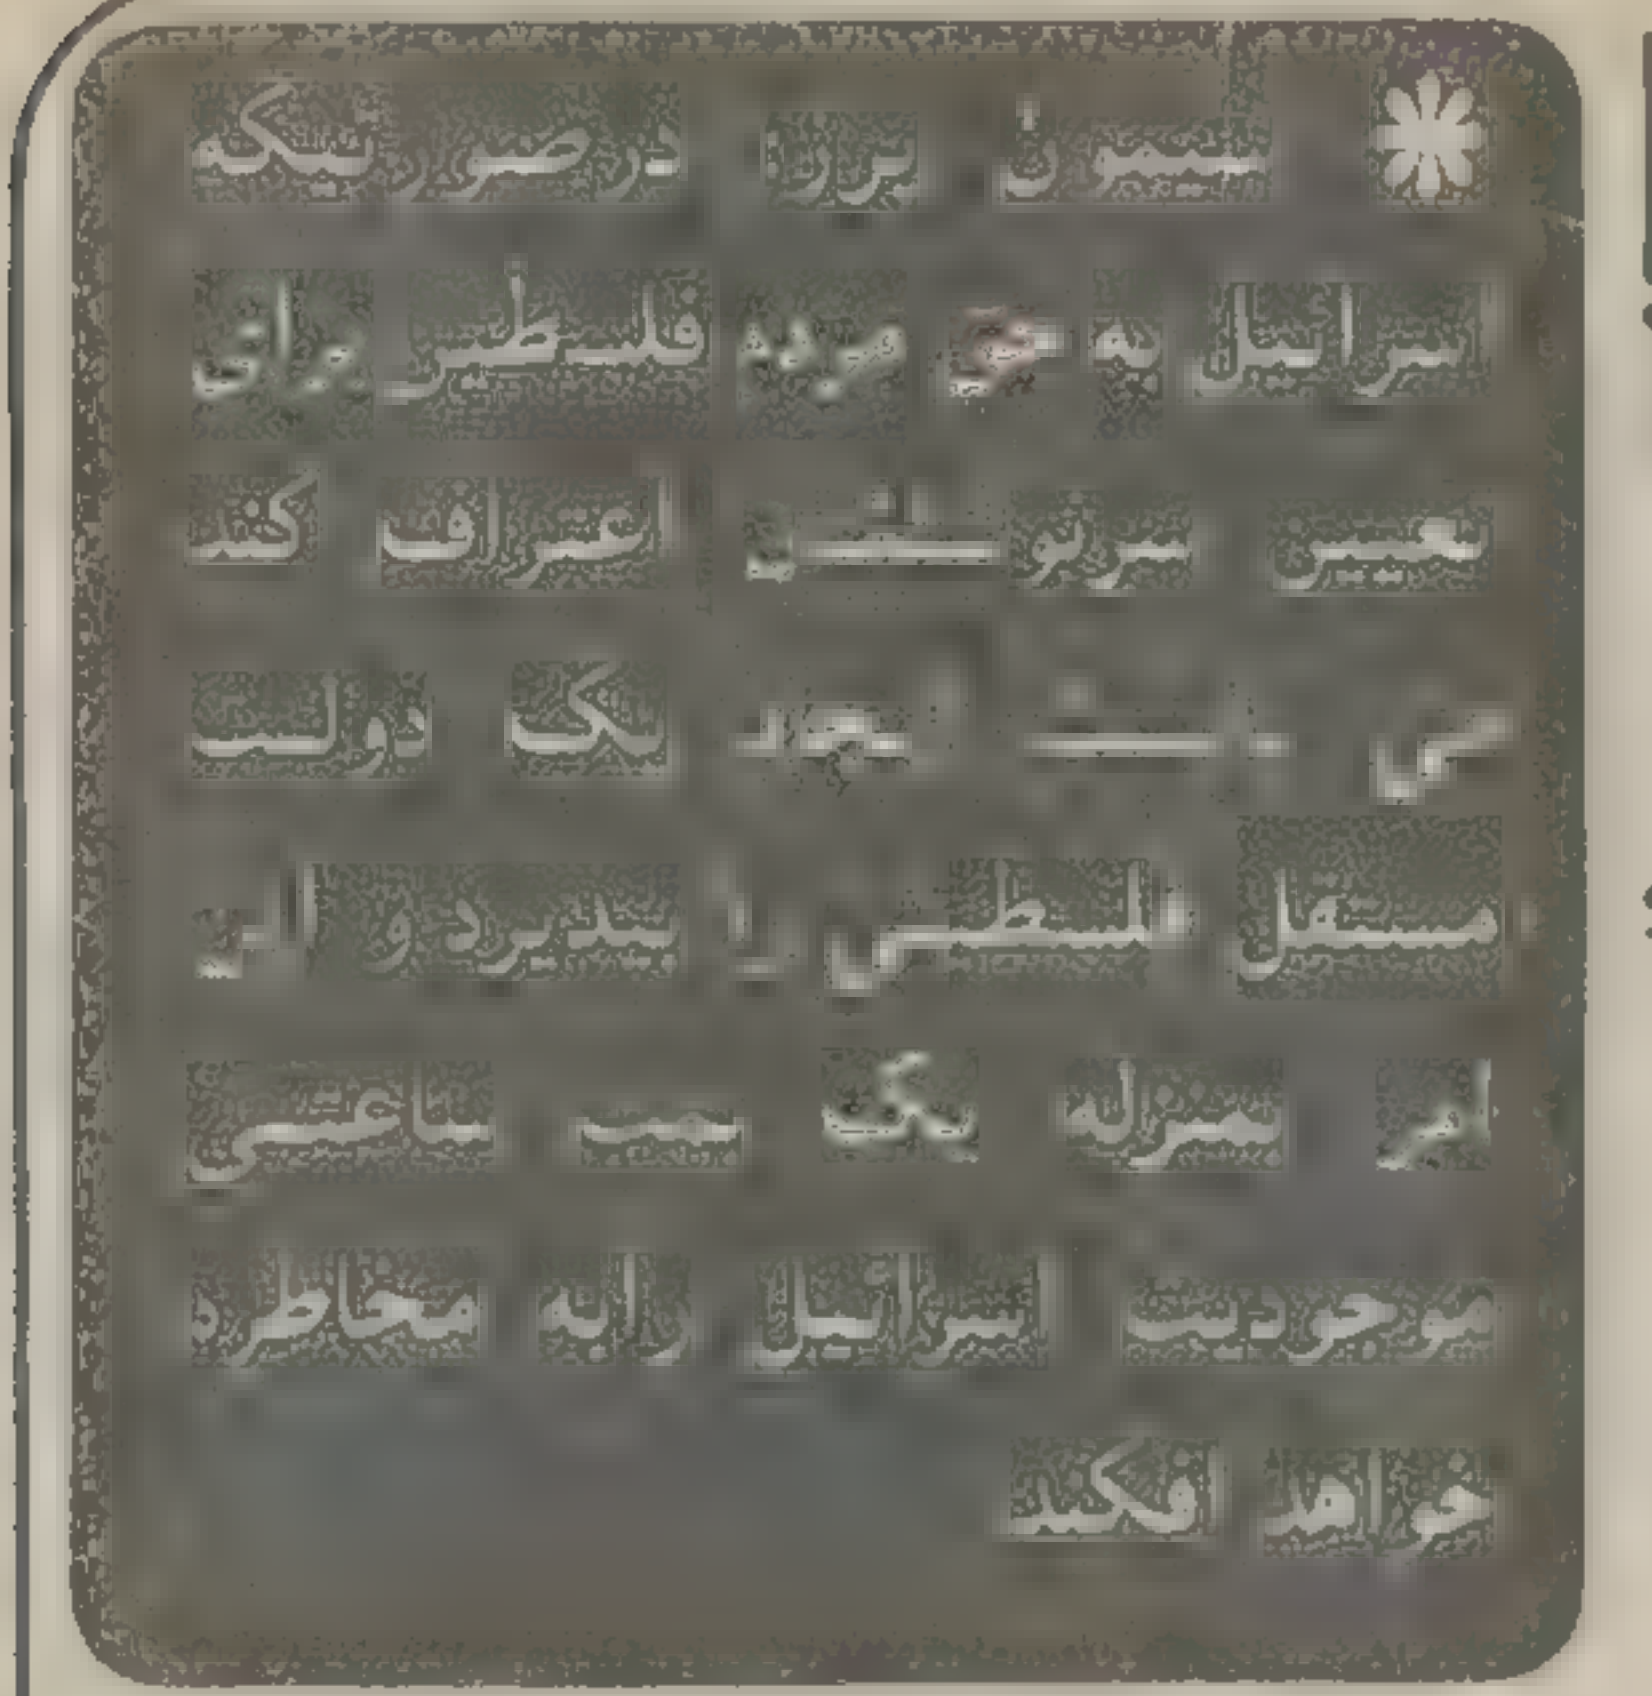 شیمون پرز: در صورتیکه
اسرائیل به حق مردم فلسطین برای
تعیین سرنوشت اعتراف کند
می باید بعد یک دولت
مستقل فلسطینی را بپذیرد و این
امر بمنزله یک بمب ساعتی
موجودیت اسرائیل را به مخاطره
خواهد افکند